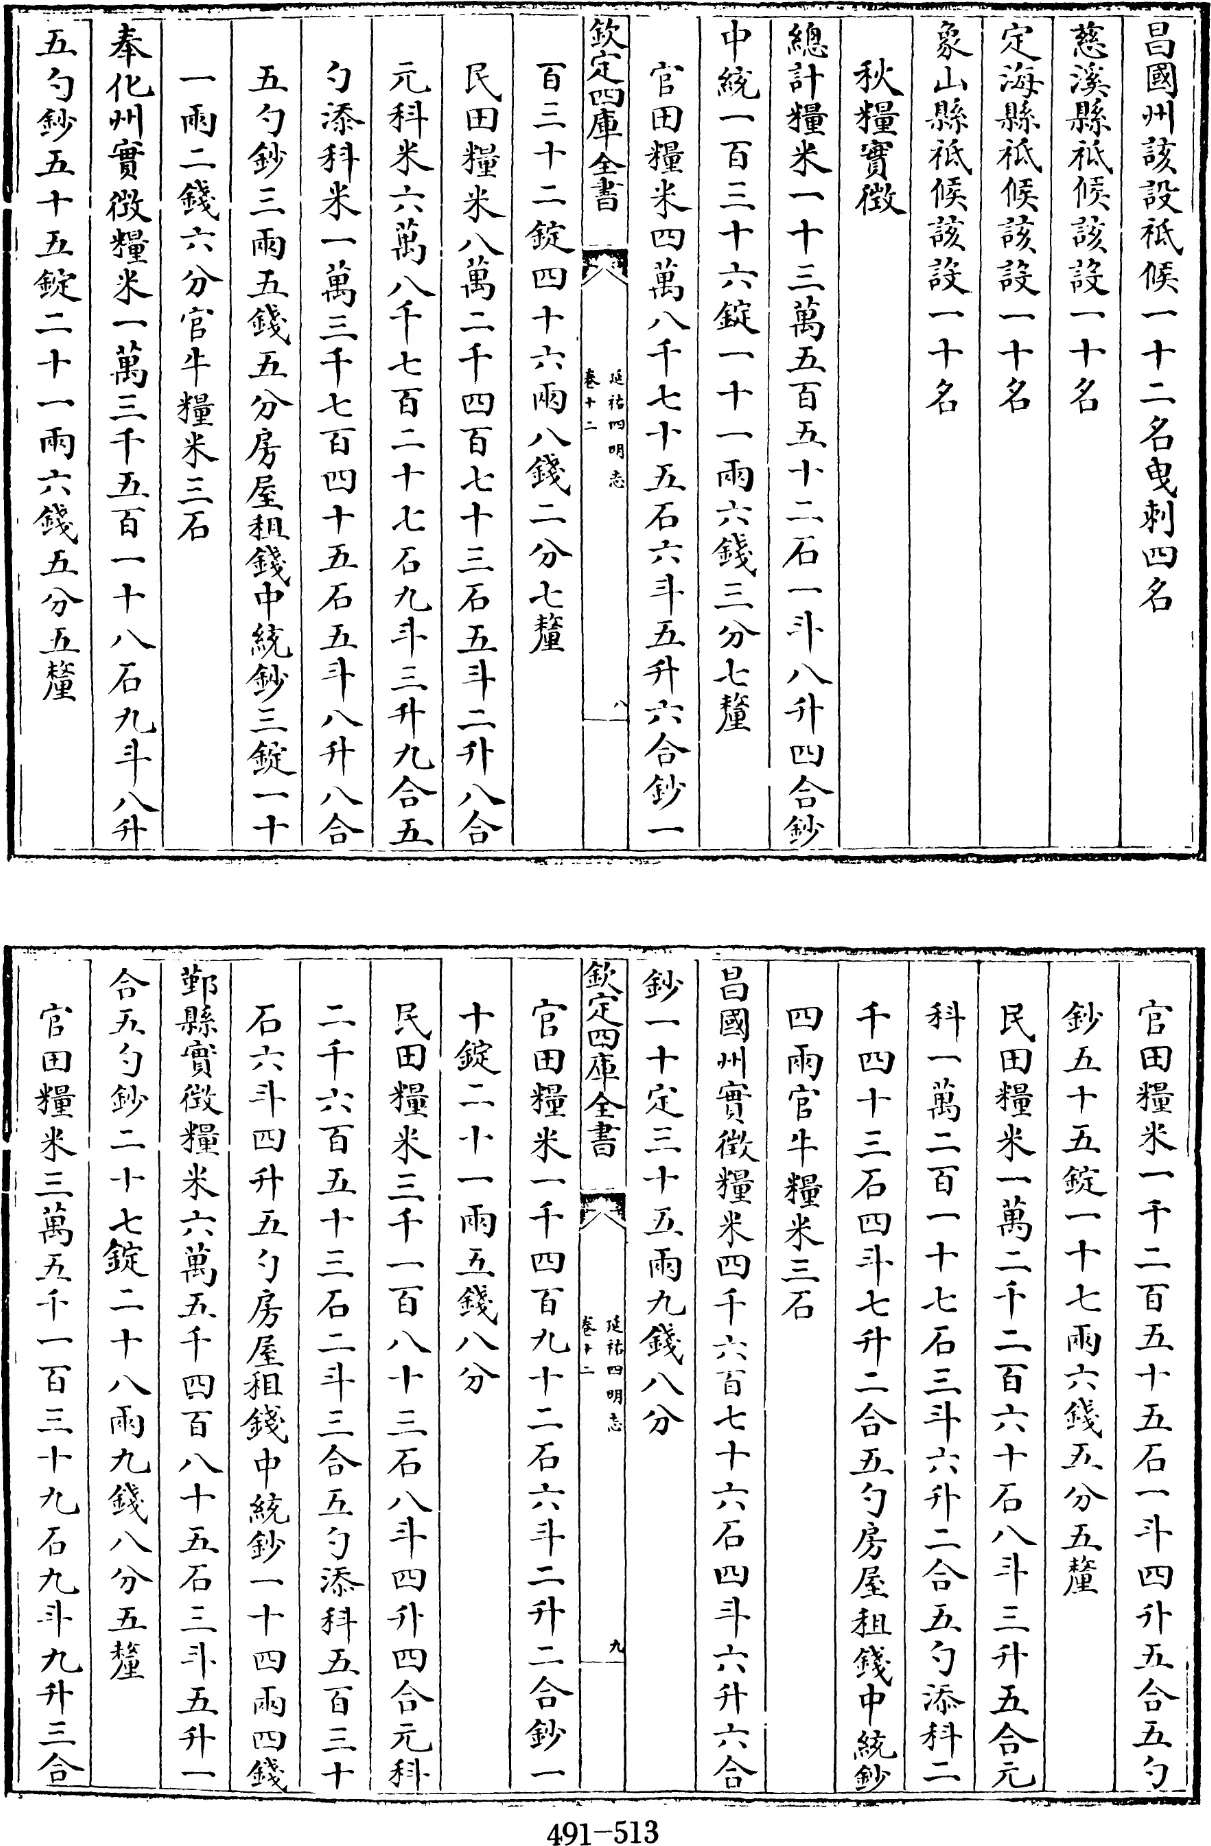 昌國州該設祗候一十二名曳剌四名
慈溪縣祗候該設一十名
定海縣祗候該設一十名
象山縣祗候該設一十名
秋糧實徵
總計糧米一十三萬五百五十二石一斗八升四合鈔
中統一百三十六錠一十一兩六錢三分七釐
官田糧米四萬八千七十五石六斗五升六合鈔一
欽定四庫全書
延祐四明志
卷十二
八
百三十二錠四十六兩八錢二分七釐
民田糧米八萬二千四百七十三石五斗二升八合
元科米六萬八千七百二十七石九斗三升九合五
勺添科米一萬三千七百四十五石五斗八升八合
五勺鈔三兩五錢五分房屋租錢中統鈔三錠一十
一兩二錢六分官牛糧米三石
奉化州實徵糧米一萬三千五百一十八石九斗八升
五勺鈔五十五錠二十一兩六錢五分五釐
官田糧米一千二百五十五石一斗四升五合五勺
鈔五十五錠一十七兩六錢五分五釐
民田糧米一萬二千二百六十石八斗三升五合元
科一萬二百一十七石三斗六升二合五勺添科二
千四十三石四斗七升二合五勺房屋租錢中統鈔
四兩官牛糧米三石
昌國州實徵糧米四千六百七十六石四斗六升六合
鈔一十定三十五兩九錢八分
欽定四庫全書
延祐四明志
卷十二
九
官田糧米一千四百九十二石六斗二升二合鈔一
十錠二十一兩五錢八分
民田糧米三千一百八十三石八斗四升四合元科
二千六百五十三石二斗三合五勺添科五百三十
石六斗四升五勺房屋租錢中統鈔一十四兩四錢
鄞縣實徵糧米六萬五千四百八十五石三斗五升一
合五勺鈔二十七錠二十八兩九錢八分五釐
官田糧米三萬五千一百三十九石九斗九升三合
491-513